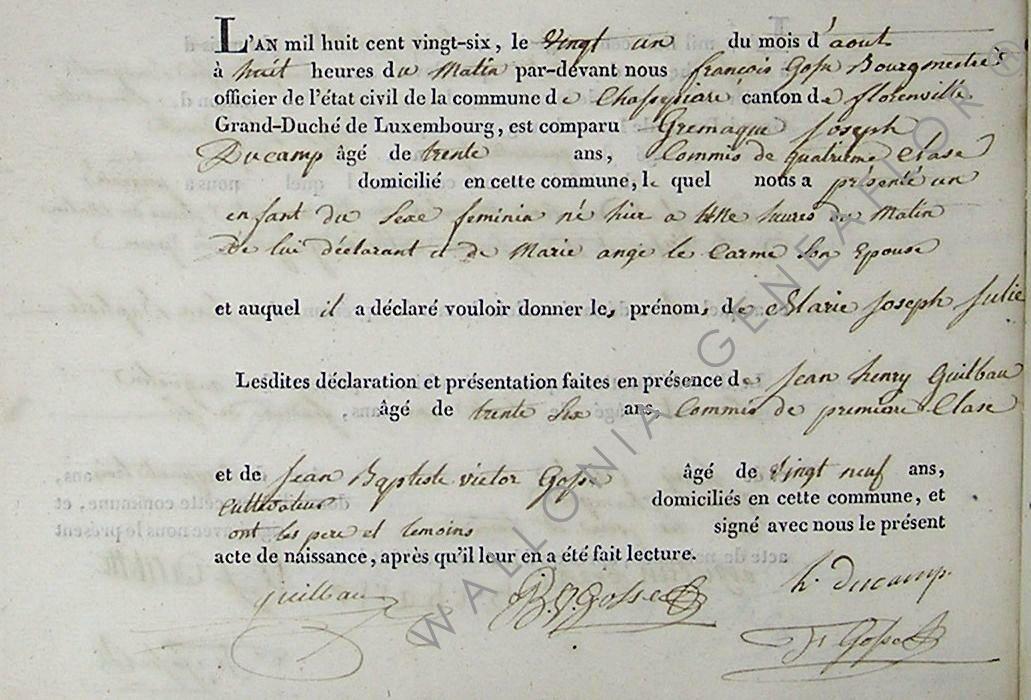 L'AN mil huit cent vingt-six, le Vingt un du mois d'aout
à huit heures du Matin par-devant nous françois Gosse Bourgmestre
officier de l'état civil de la commune de Chassepiaré canton de florenville
Grand-Duché de Luxembourg, est comparu Gremaque Joseph
Ducamp âgé de trente ans, Commis de quatrieme Clase
domicilié en cette commune, le quel nous a présenté un
enfant du Sexe feminin né hier a heures du Matin
De lui déclarant et de Marie ange le Carme Son Epouse
et auquel il a déclaré vouloir donner les prénoms de Marie Joseph Julie
Lesdites déclaration et présentation faites en présence de Jean henry Guilbau
âgé de trente Six ans, Commis de premiere Clase
et de Jean Baptiste victor Gosse âgé de Vingt neuf ans,
Cultivateur domiciliés en cette commune, et
ont les pere et temoins signé avec nous le présent
acte de naissance, après qu'il leur en a été fait lecture.
guilbau B.V. Gosse h. ducamp
F Gosse
WALLONIA GENEAFLOR ®